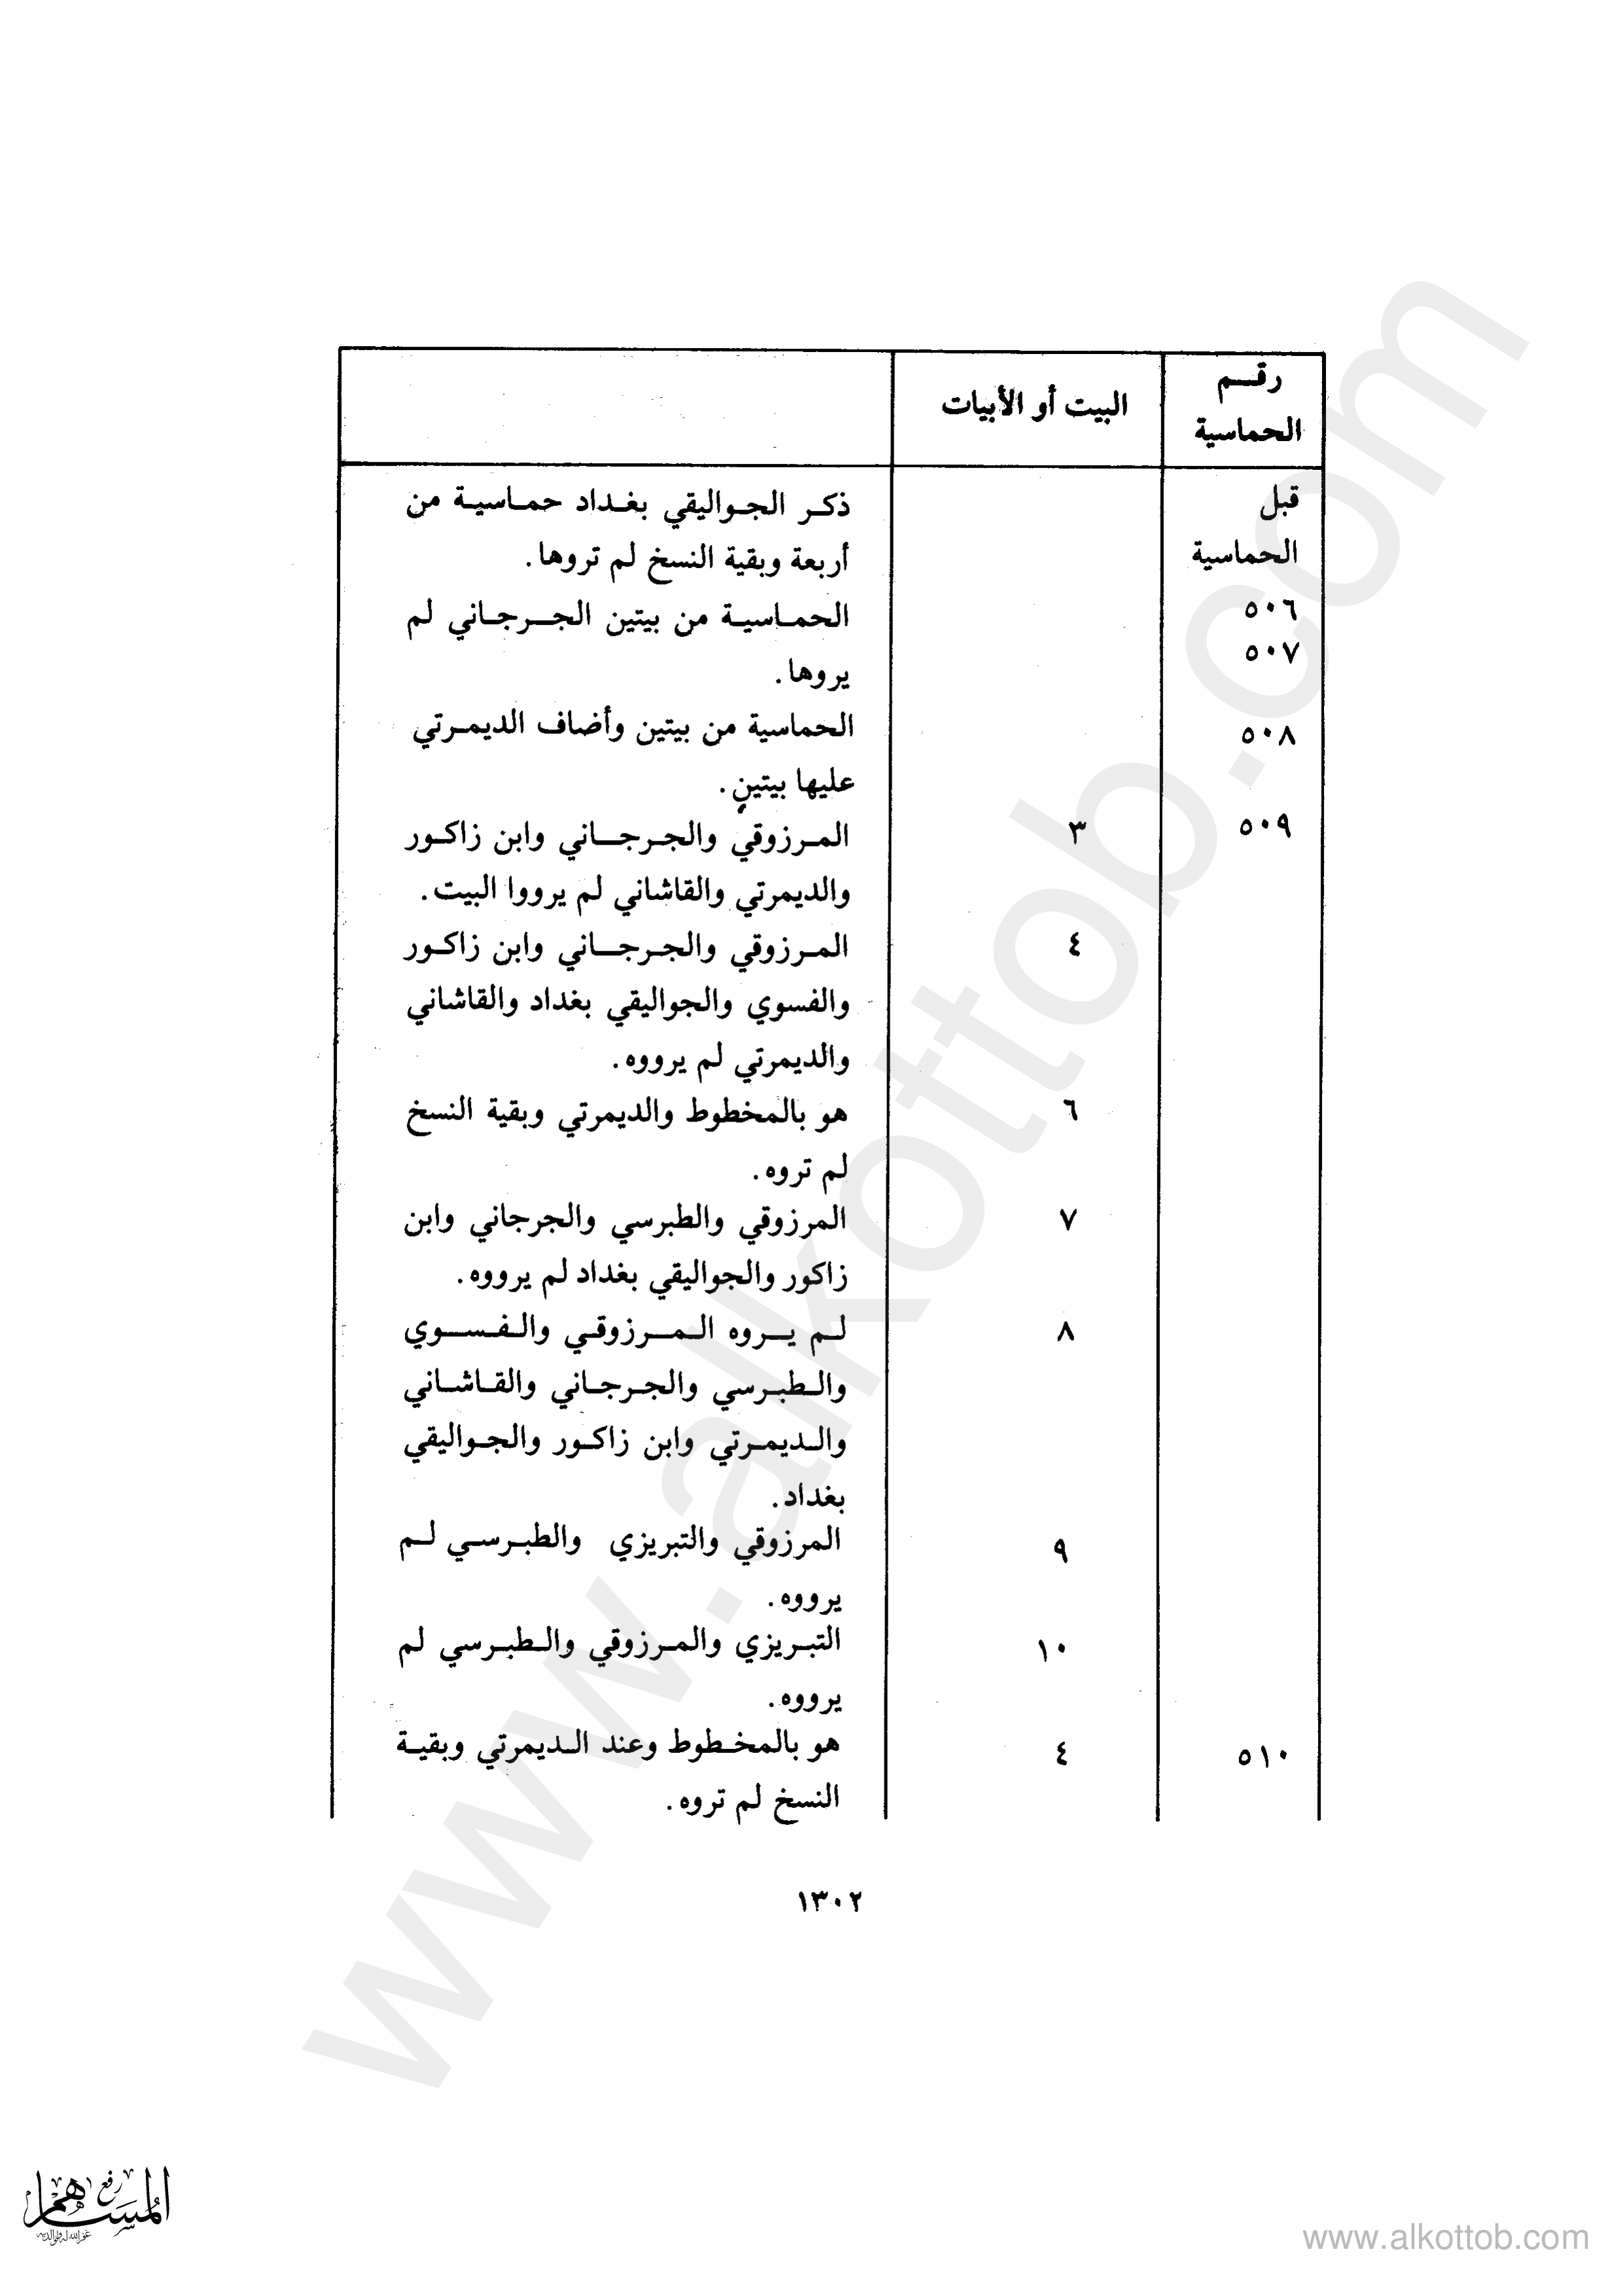 رقم البيت أو الأبيات
الحماسية
قبل ذكر الجواليقي بغداد حماسية من
الحماسية أربعة وبقية النسخ لم تروها.
٥٠٦ الحماسية من بيتين الجرجاني لم
٥٠٧ يروها.
٥٠٨ الحماسية من بيتين وأضاف الديمرتي
عليها بيتين.
٥٠٩ ٣ المرزوقي والجرجاني وابن زاكور
والديمرتي والقاشاني لم يرووا البيت.
٤ المرزوقي والجرجاني وابن زاكور
والفسوي والجواليقي بغداد والقاشاني
والديمرتي لم يرووه.
٦ هو بالمخطوط والديمرتي وبقية النسخ
لم تروه.
٧ المرزوقي والطبرسي والجرجاني وابن
زاكور والجواليقي بغداد لم يرووه.
٨ لم يروه المرزوقي والفسوي
والطبرسي والجرجاني والقاشاني
والديمرتي وابن زاكور والجواليقي
بغداد.
٩ المرزوقي والتبريزي والطبرسي لم
يرووه.
١٠ التبريزي والمرزوقي والطبرسي لم
يرووه.
٥١٠ ٤ هو بالمخطوط وعند الديمرتي وبقية
النسخ لم تروه.
١٣٠٢
www.alkottob.com
رفع
المساهم
غفر الله له ولوالديه
www.alkottob.com